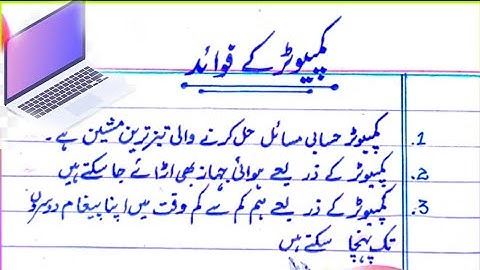 کمپیوٹر کے فوائد
1. کمپیوٹر حسابی مسائل حل کرنے والی تیز ترین مشین ہے۔
2. کمپیوٹر کے ذریعے ہوائی جہاز بھی اڑائے جا سکتے ہیں
3. کمپیوٹر کے ذریعے ہم کم سے کم وقت میں اپنا پیغام دوسروں
تک پہنچا سکتے ہیں